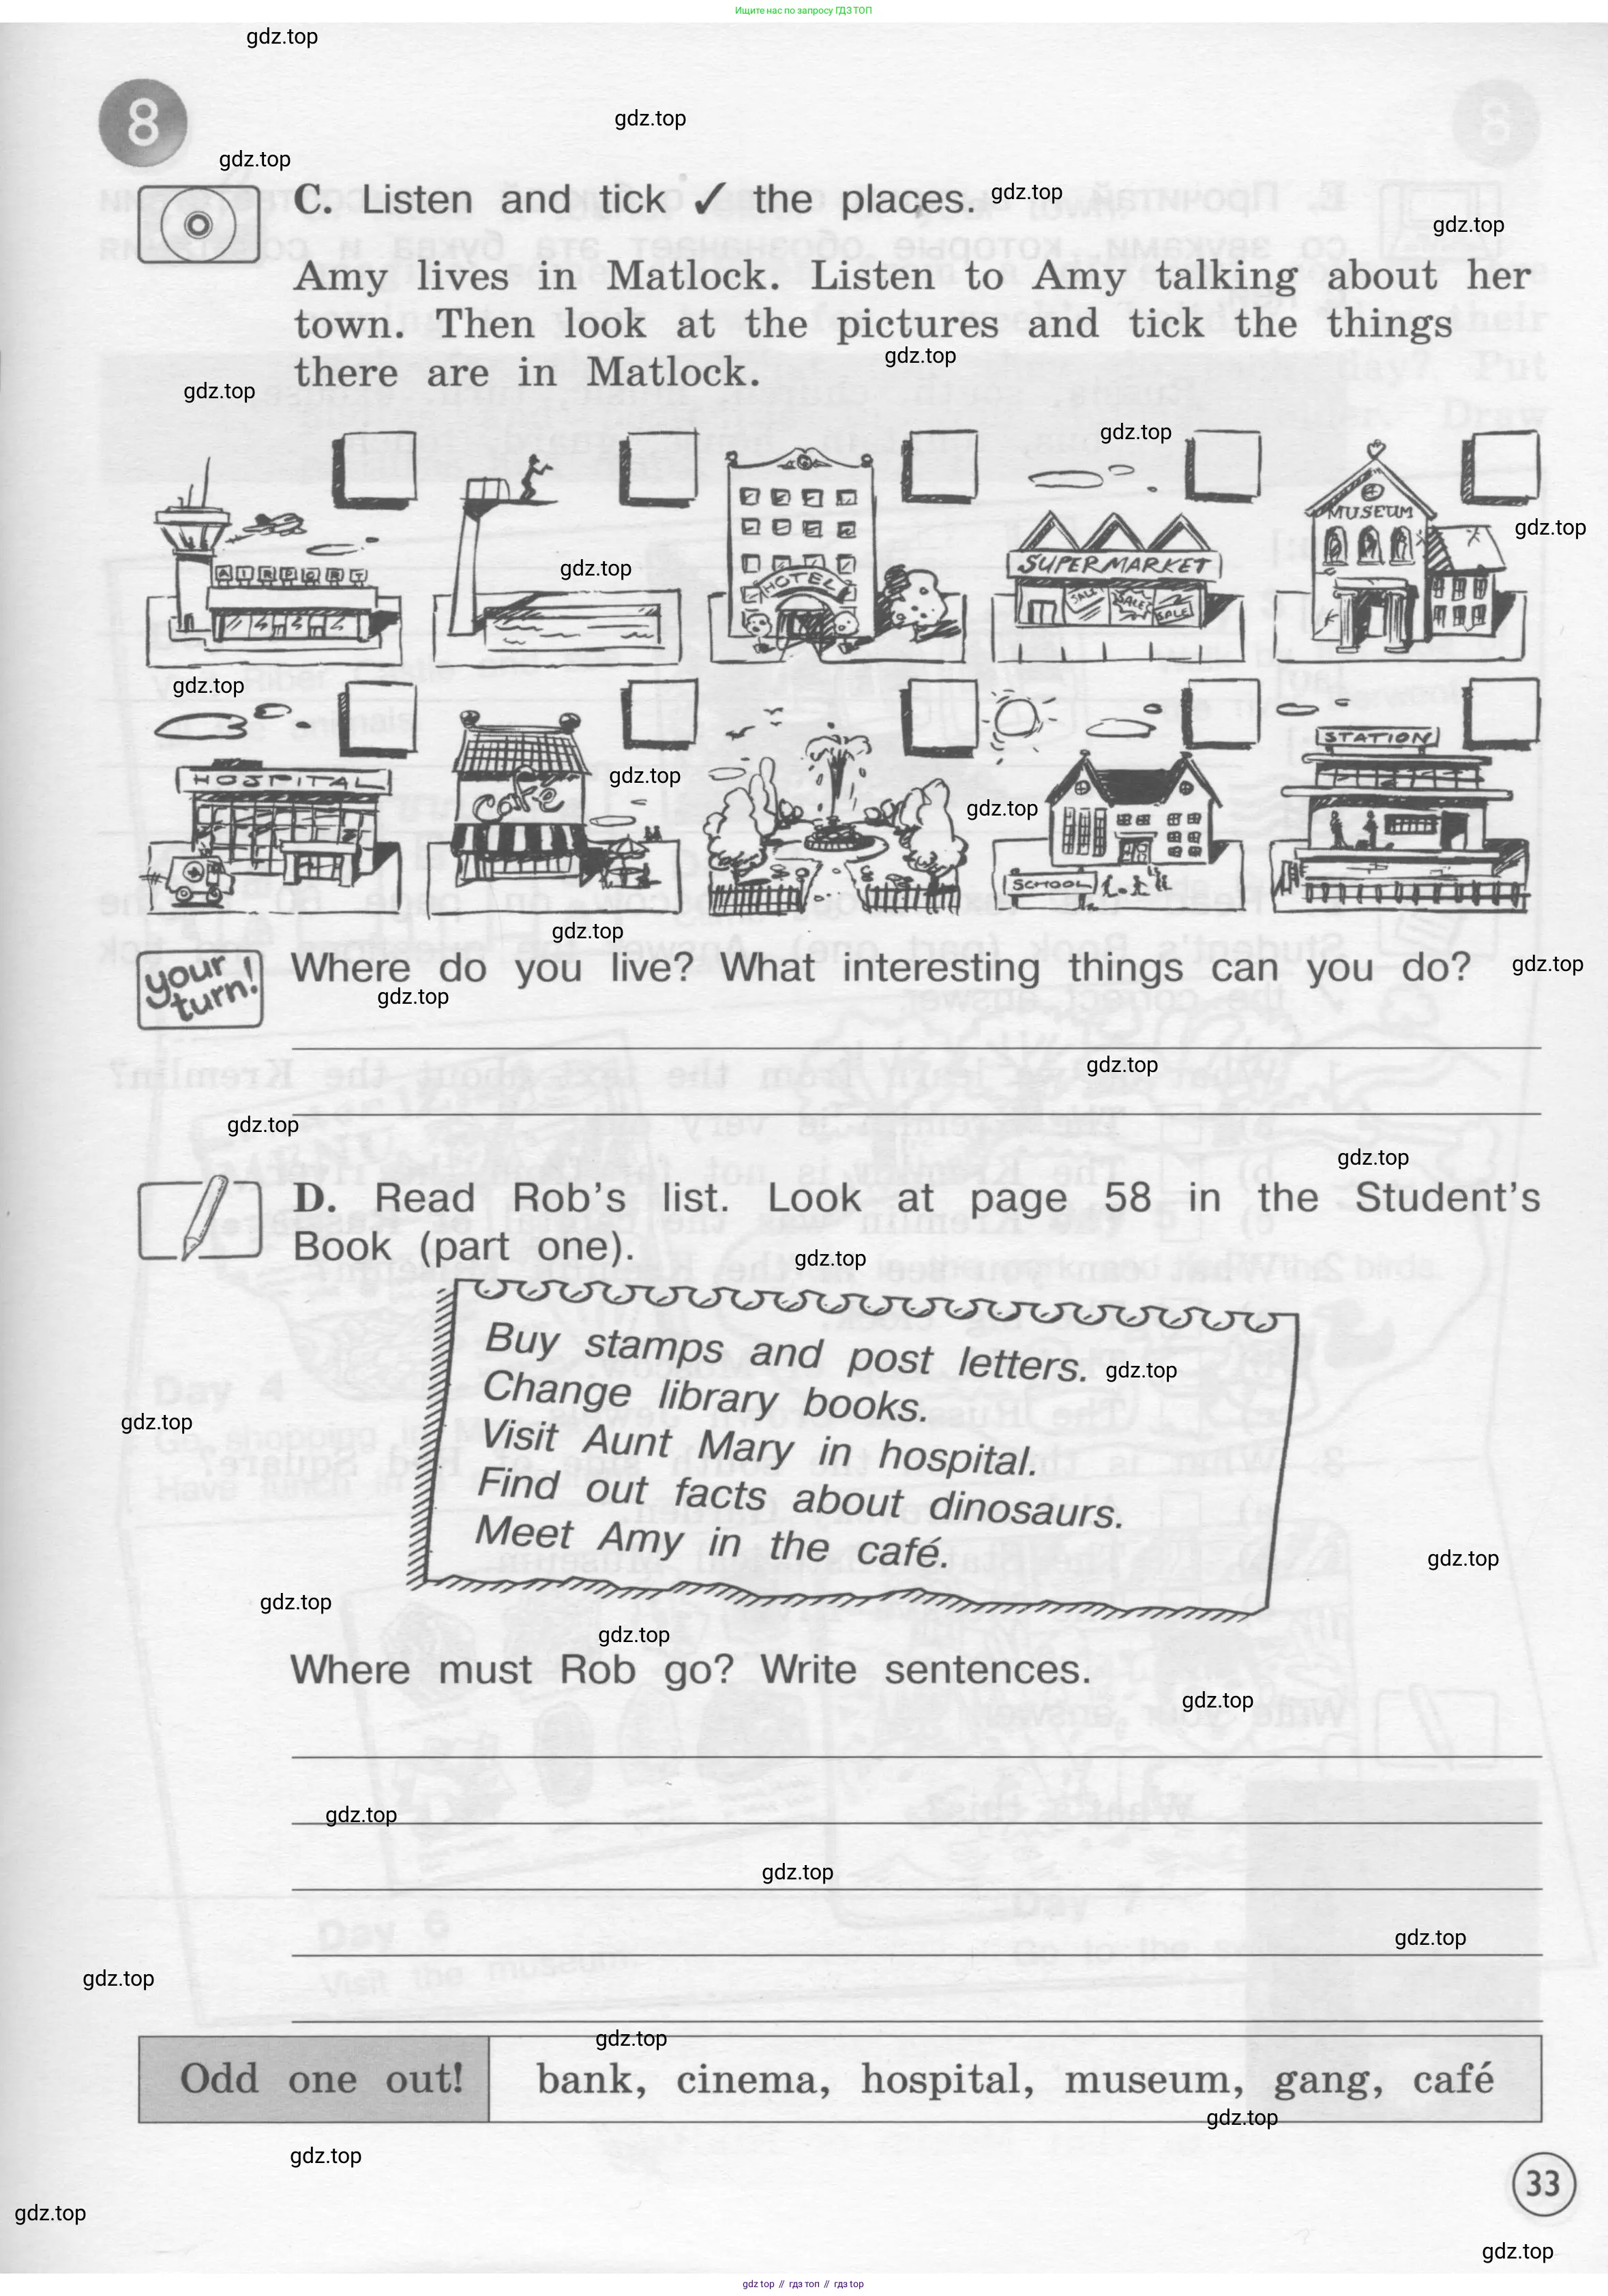 Ищите нас по запросу ГДЗ ТОП
gdz.top
8
gdz.top
gdz.top
C. Listen and tick ✓ the places.
gdz.top
gdz.top
Amy lives in Matlock. Listen to Amy talking about her
town. Then look at the pictures and tick the things
there are in Matlock.
gdz.top
gdz.top
gdz.top
AIRPORT
HOTEL
SUPERMARKET
SALE
SALE
SALE
MUSEUM
gdz.top
gdz.top
gdz.top
HOSPITAL
Café
gdz.top
gdz.top
SCHOOL
STATION
gdz.top
your turn!
Where do you live? What interesting things can you do?
gdz.top
gdz.top
gdz.top
gdz.top
gdz.top
D. Read Rob's list. Look at page 58 in the Student's
Book (part one).
gdz.top
Buy stamps and post letters.
gdz.top
Change library books.
gdz.top
Visit Aunt Mary in hospital.
Find out facts about dinosaurs.
Meet Amy in the café.
gdz.top
gdz.top
gdz.top
Where must Rob go? Write sentences.
gdz.top
gdz.top
gdz.top
gdz.top
gdz.top
gdz.top
Odd one out! bank, cinema, hospital, museum, gang, café
gdz.top
gdz.top
33
gdz.top
gdz.top
gdz top // гдз топ // гдз top